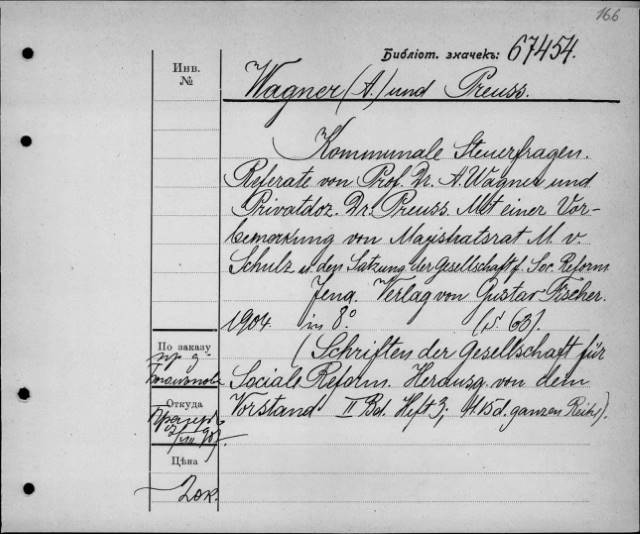 166
Библіот. значекъ: 67454.
Инв.
№
Wagner (A.) und Preuss.
(Kommunale Steuerfragen.
Referate von Prof. Dr. A. Wagner und
Privatdoz. Dr. Preuss. Mit einer Vor-
bemerkung von Magistratsrat M. v.
Schulz u. den Satzung der Gesellschaft f. Soc. Reform
Jena. Verlag von Gustav Fischer.
1904. in 8° (S. 63).
(Schriften der Gesellschaft für
Sociale Reform. Herausg. von dem
Vorstand II Bd. Heft 3; H. 15 d. ganzen Reihe).
По заказу
пр. д.
Откуда
Цѣна